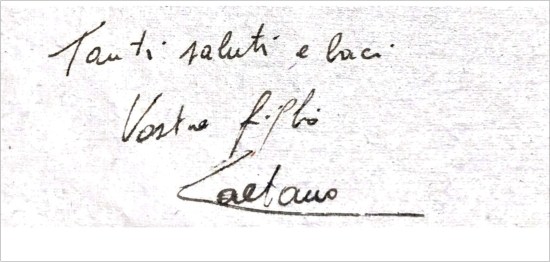 Tanti saluti e baci
Vostro figlio
Gaetano